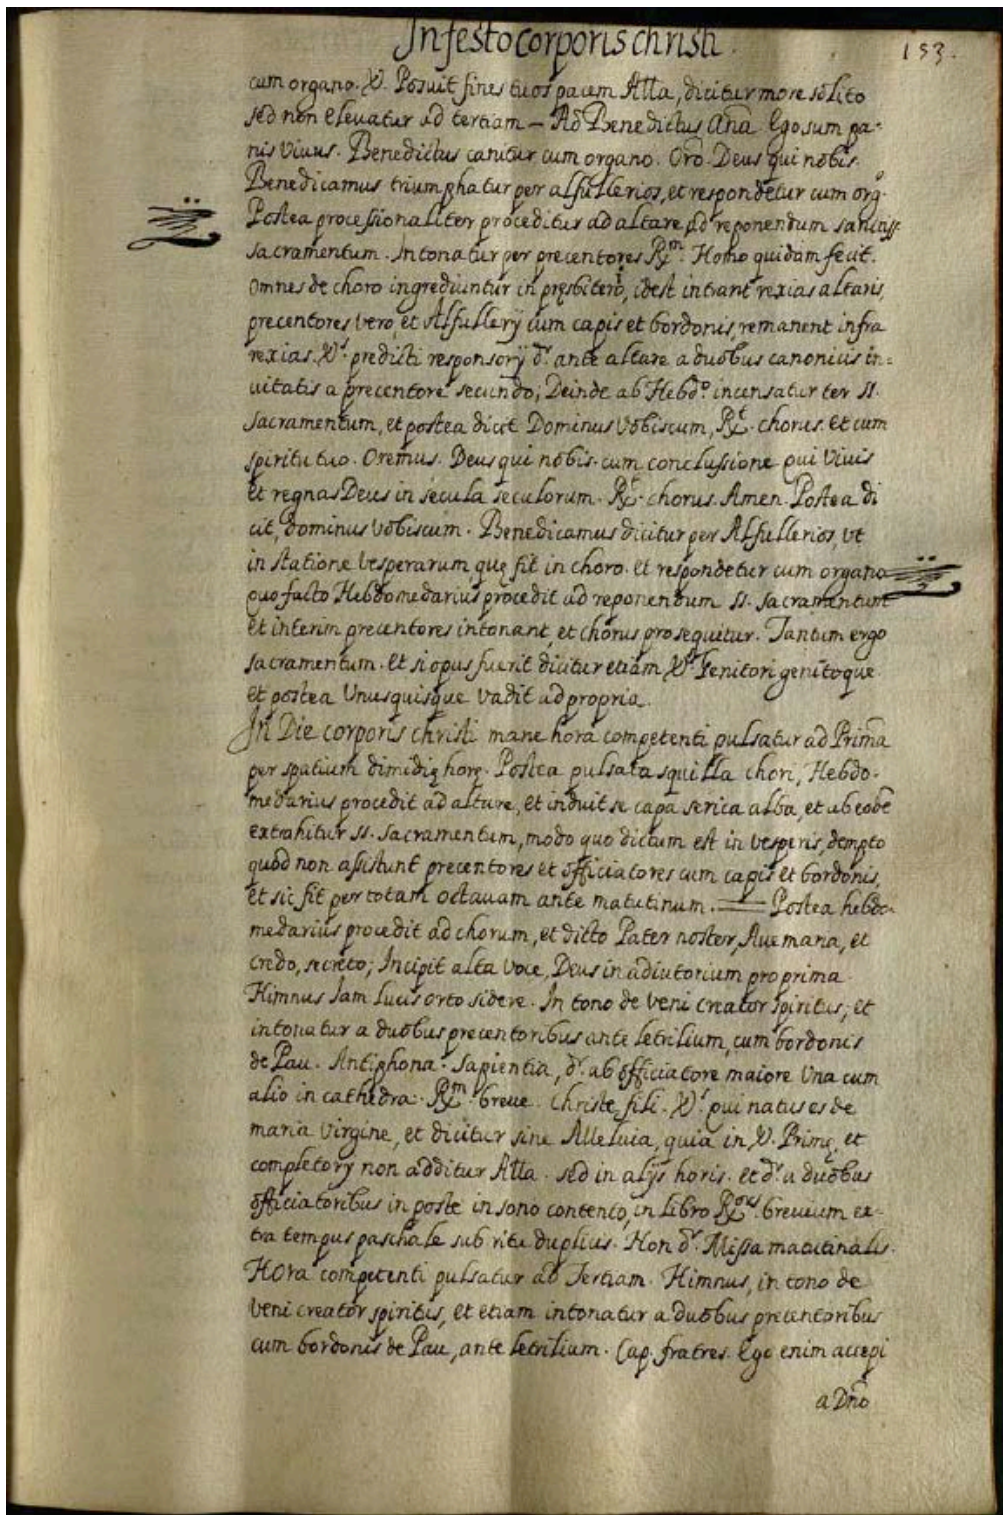 In festo corporis christi.
153.
cum organo. ℣. Posuit fines tuos pacem Alla, dicitur more solito
sed non elevatur ad tertiam — Ad Benedictus Aña Ego sum pa-
nis vivus. Benedictus canitur cum organo. Orõ. Deus qui nobis.
Benedicamus triumphatur per alfullerios, et respondetur cum orgº.
Postea processionaliter proceditur ad altare ad reponendum sanctiss.
sacramentum. Intonatur per precentores ℟m. Homo quidam fecit.
omnes de choro ingrediuntur in pręsbiterio, idest intrant rexias altaris,
precentores vero, et Alfullerij cum capis et bordonis, remanent infra
rexias. ℣s. predicti responsorij dr. ante altare a duobus canonicis in=
uitatis a precentore secundo; Deinde ab Hebdº. incensatur ter SS.
sacramentum, et postea dicit Dominus vobiscum, ℟t. chorus. et cum
spiritu tuo. Oremus. Deus qui nobis. cum conclussione qui vivis
et regnas Deus in secula seculorum. ℟t. chorus. Amen. Postea di
cit, dominus vobiscum. Benedicamus dicitur per Alfullerios, ut
in statione vesperarum quę fit in choro. et respondetur cum organo
quo facto Hebdomedarius procedit ad reponendum SS. sacramentum
et interim precentores intonant, et chorus prosequitur. Tantum ergo
sacramentum. et si opus fuerit dicitur etiam ℣s. Genitori genitoque
et postea unusquisque vadit ad propria.
In Die corporis christi mane hora competenti pulsatur ad Primã
per spatium dimidię horę. Postea pulsata squilla chori, Hebdo-
medarius procedit ad altare, et induit se capa serica alba, et ab eodẽ
extrahitur SS. sacramentum, modo quo dictum est in vesperis, dempto
quod non assistunt precentores et officiatores cum capis et bordonis,
et sic fit per totam octavam ante matutinum. == Postea hebdo-
medarius procedit ad chorum, et dicto Pater noster, Ave maria, et
credo, secreto; Incipit alta voce, Deus in adiutorium pro prima
Himnus Iam lucis orto sidere. In tono de veni creator spiritus; et
intonatur a duobus precentoribus ante letrilium, cum bordonis
de Pau. Antiphona. Sapientia, dr. ab officiatore maiore una cum
alio in cathedra. ℟m. breve. christe fili. ℣s. qui natus es de
maria virgine, et dicitur sine Alleluia, quia in ℣. Primę, et
completorij non additur Alla. sed in alijs horis. et dr. a duobus
officiatoribus in poste in sono contento, in libro ℟orũ. brevium ex-
tra tempus paschale sub ritu duplici. Non dr. Missa matutinalis.
Hora competenti pulsatur ad Tertiam. Himnus, in tono de
veni creator spiritus, et etiam intonatur a duobus precentoribus
cum bordonis de Pau, ante letrilium. Cap. fratres. Ego enim accepi
a Dño